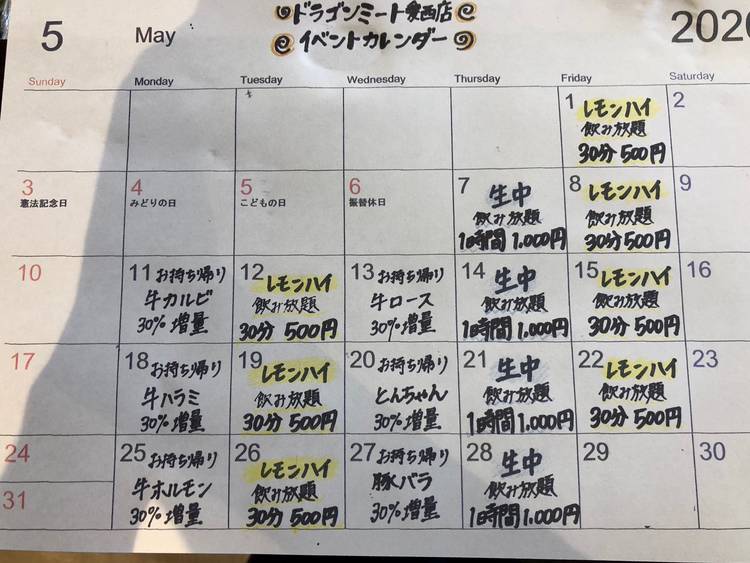 ドラゴンミート愛西店
イベントカレンダー
5 May 2020
Sunday Monday Tuesday Wednesday Thursday Friday Saturday
1 レモンハイ
飲み放題
30分 500円
2
3
憲法記念日
4
みどりの日
5
こどもの日
6
振替休日
7 生中
飲み放題
1時間 1.000円
8 レモンハイ
飲み放題
30分 500円
9
10
11 お持ち帰り
牛カルビ
30% 増量
12 レモンハイ
飲み放題
30分 500円
13 お持ち帰り
牛ロース
30% 増量
14 生中
飲み放題
1時間 1.000円
15 レモンハイ
飲み放題
30分 500円
16
17
18 お持ち帰り
牛ハラミ
30% 増量
19 レモンハイ
飲み放題
30分 500円
20 お持ち帰り
とんちゃん
30% 増量
21 生中
飲み放題
1時間 1.000円
22 レモンハイ
飲み放題
30分 500円
23
24
25 お持ち帰り
牛ホルモン
30% 増量
26 レモンハイ
飲み放題
30分 500円
27 お持ち帰り
豚バラ
30% 増量
28 生中
飲み放題
1時間 1.000円
29
30
31